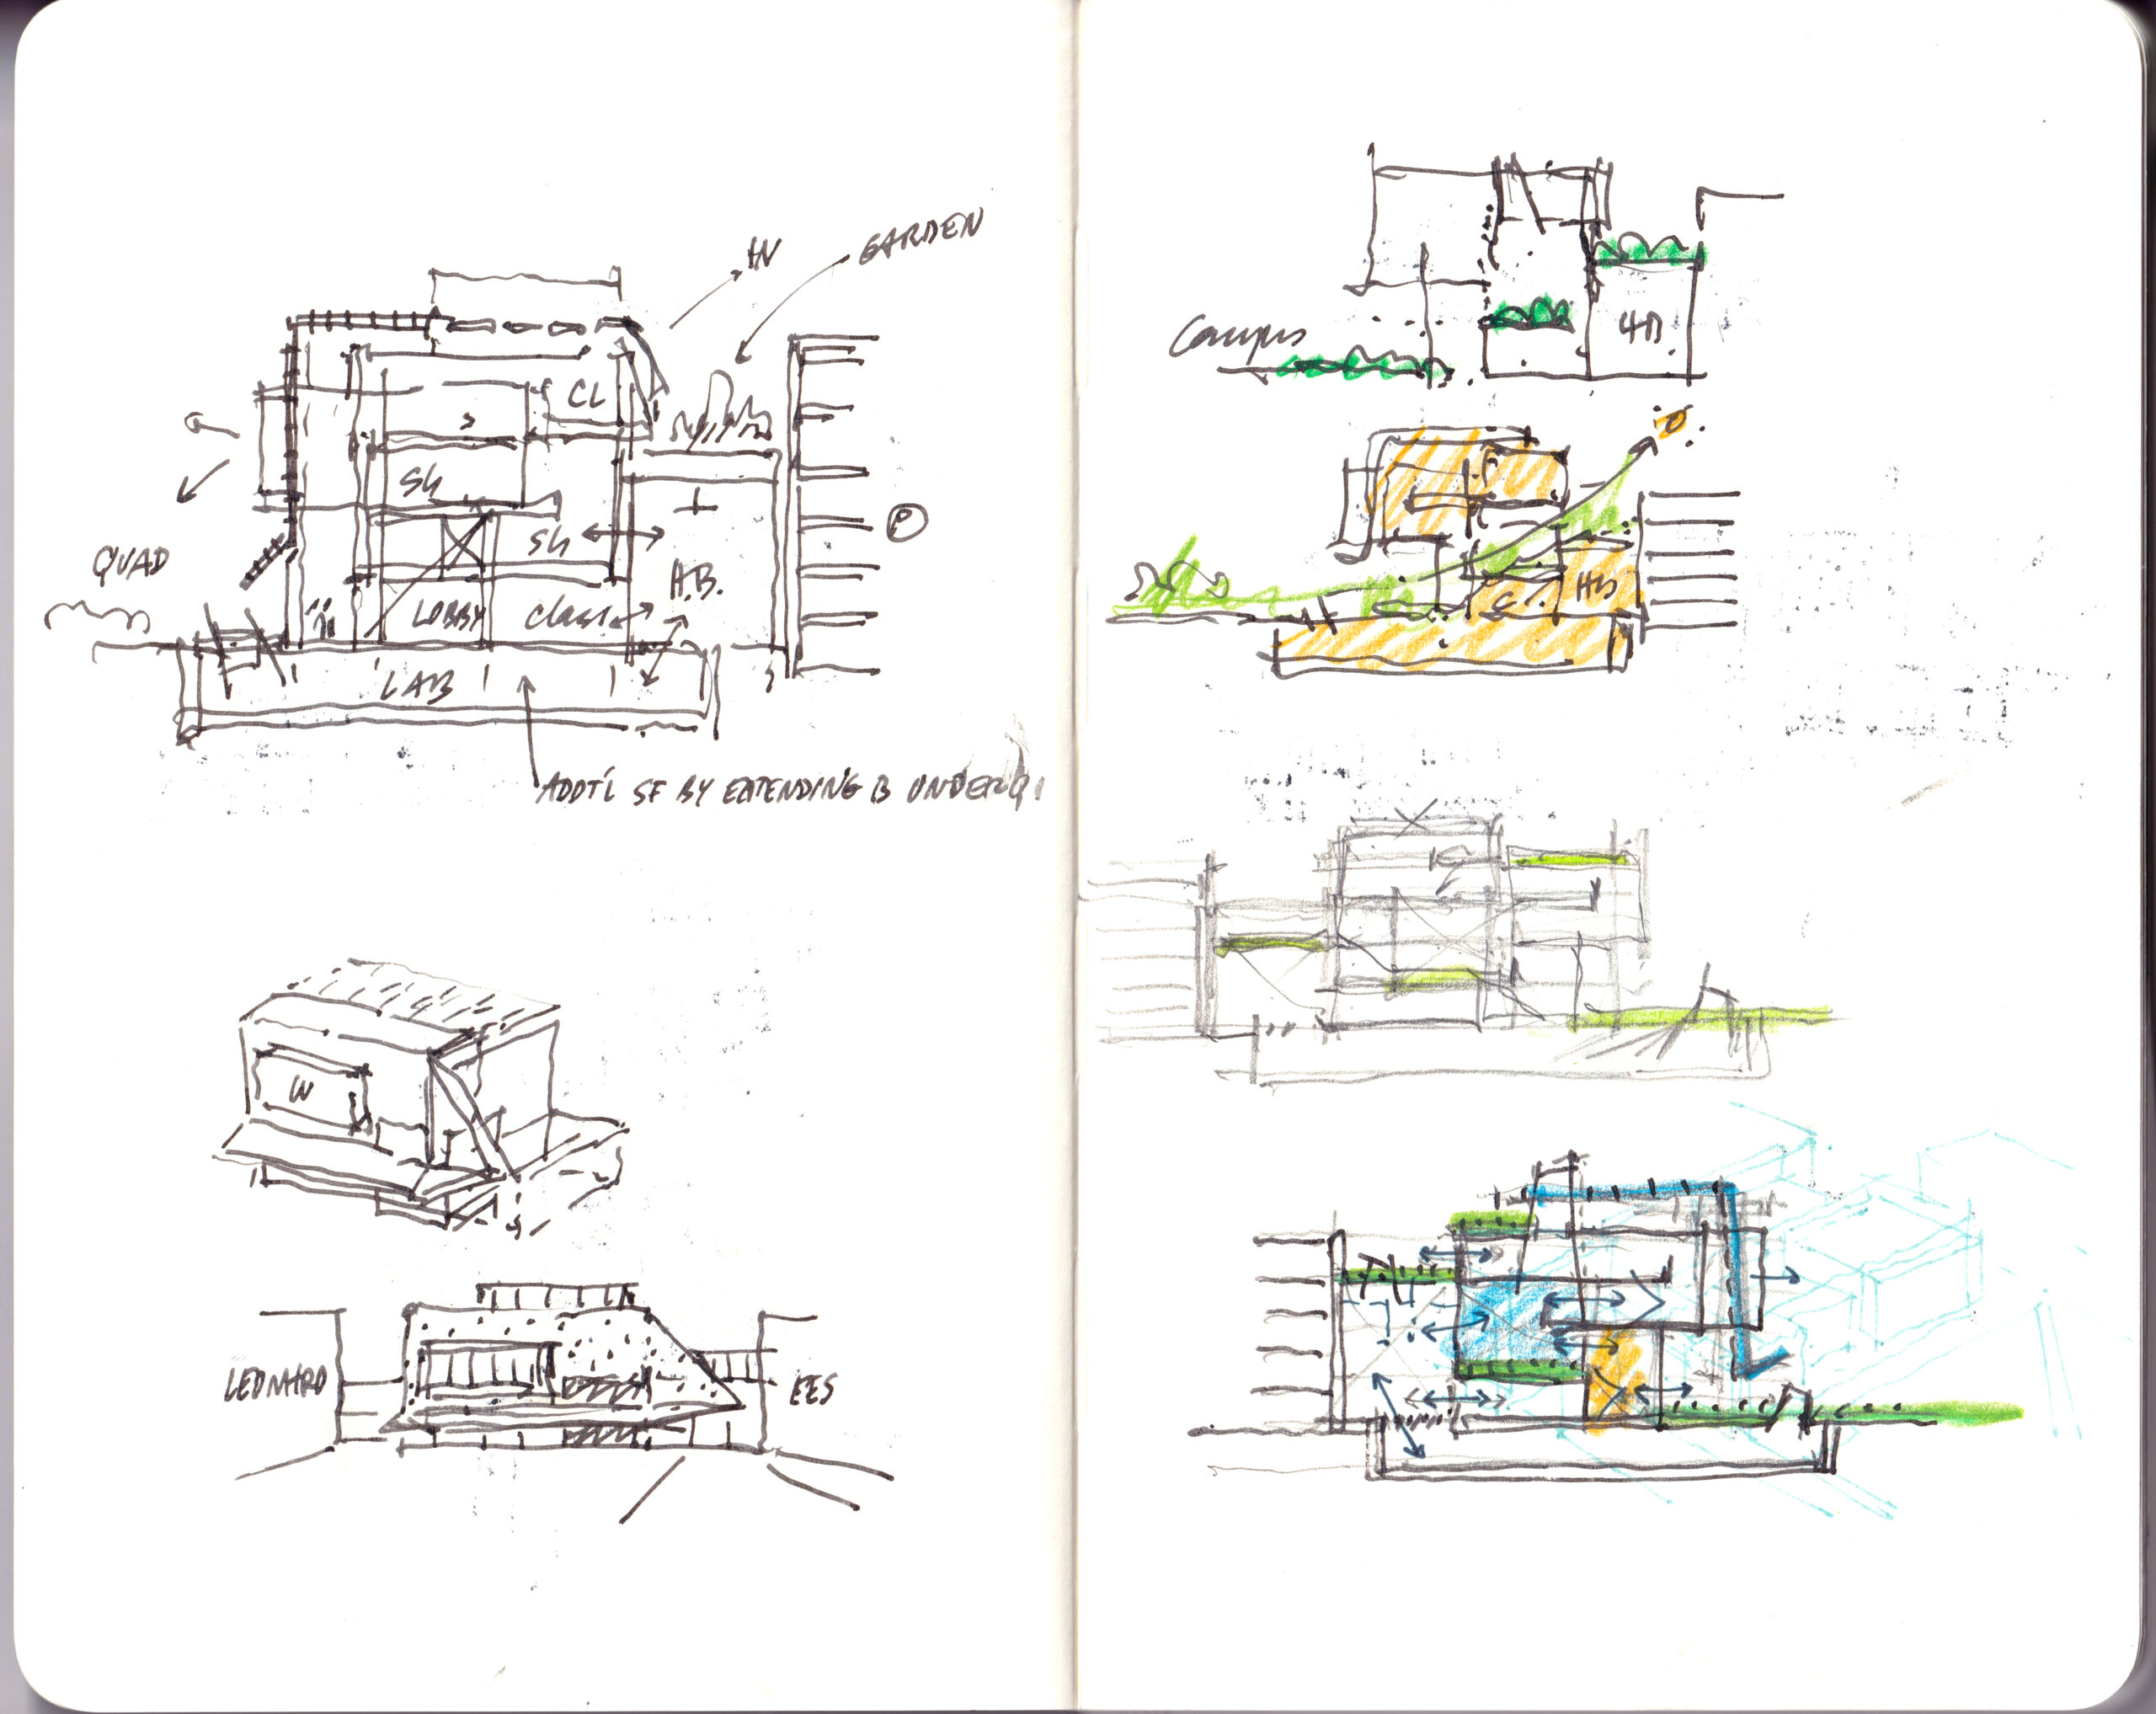 IN
GARDEN
CL
S
S4
P
S4
QUAD
A.B.
LOBBY
class
LAB
ADDT'L SF BY EXTENDING B UNDER Q.
W
LEONARD
EES
Campus
HB
C
HB